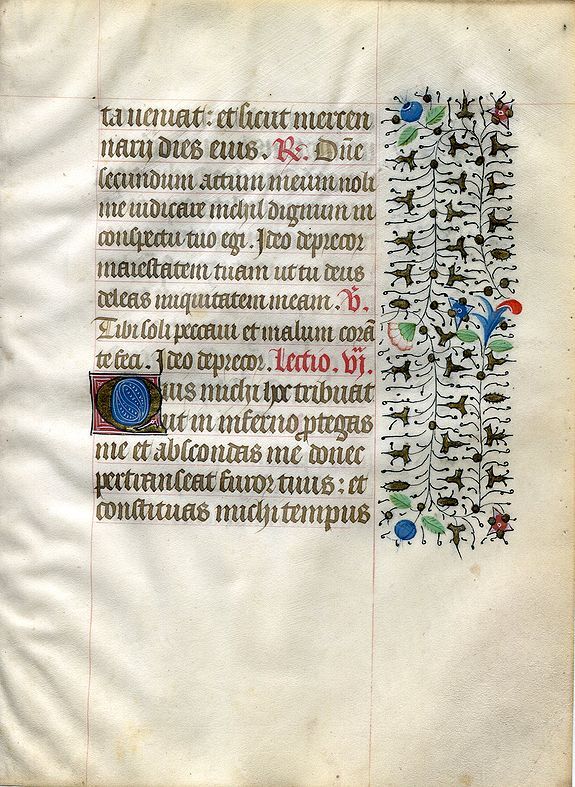 ta veniat: et sicut mercen
narij dies eius. R. Dn̄e
secundum actum meum noli
me iudicare nichil dignum in
conspectu tuo egi. Ideo deprecor
maiestatem tuam ut tu deus
deleas iniquitatem meam. V.
Tibi soli peccaui et malum corā
te feci. Ideo deprecor. Lectio. vij.
Quis michi hoc tribuat
ut in inferno ꝓtegas
me et abscondas me donec
pertranseat furor tuus: et
constituas michi tempus